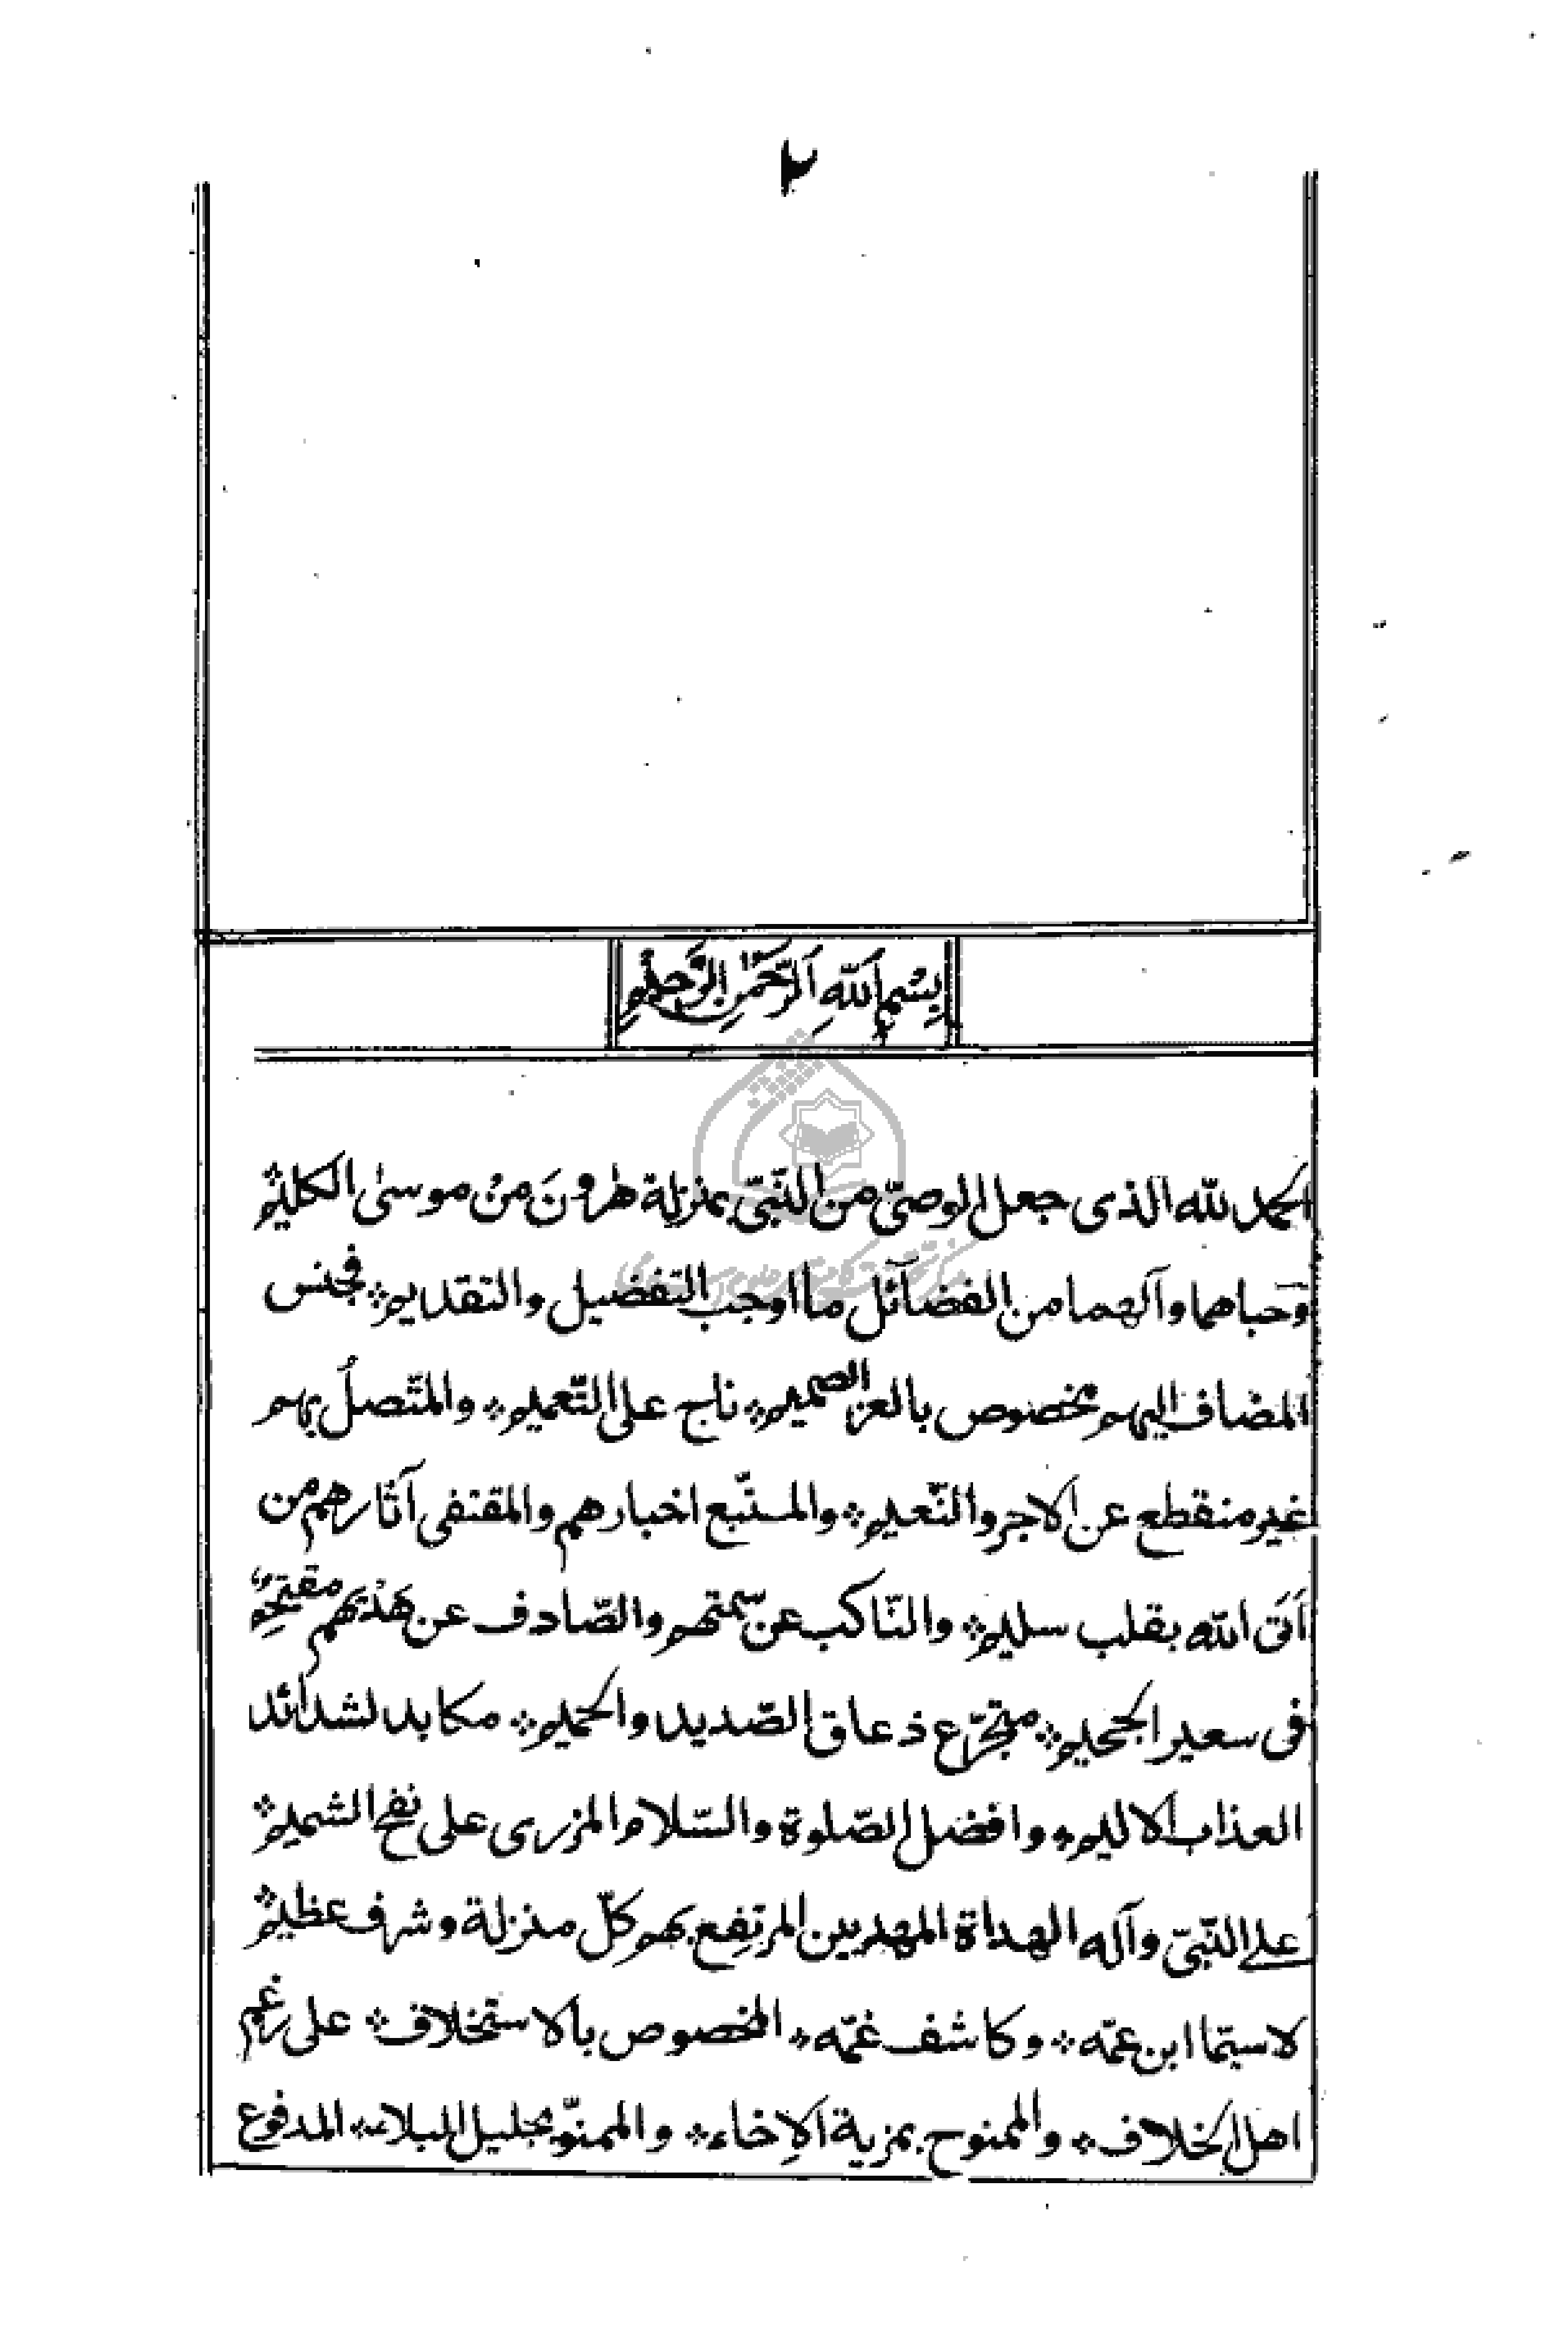 ٢
بِسْمِ اللّٰهِ الرَّحْمٰنِ الرَّحِيْمِ
الحمد للّه الذى جعل الوصىّ من النّبىّ بمنزلة هٰرونَ منْ موسىٰ الكليم
وحباهما وآلهما من الفضآئل ما اوجب التفضيل والتقديم ❖ فجنس
المضاف اليهم مخصوص بالعز الصميم ❖ ناج على التّعميم ❖ والمتّصلُ بهم
غير منقطع عن الاجر والنّعيم ❖ والمتتبّع اخبارهم والمقتفى آثارهم من
اَتَى اللّه بقلب سليم ❖ والنّاكب عن سمتهم والصّادف عن هَدْيهم مقتحِمٌ
فى سعير الجحيم ❖ متجرّع ذعاق الصّديد والحميم ❖ مكابد لشدائد
العذاب الاليم ❖ وافضل الصّلوة والسّلام المزرى على نفح الشميم ❖
على النّبىّ وآله الهداة المهديين المرتفِع بهم كلّ منزلة وشرف عظيم ❖
لاسيّما ابن عمّه ❖ وكاشف غمّه ❖ المخصوص بالاستخلاف ❖ على رغم
اهل الخلاف ❖ والممنوح بمزية الاِخاء ❖ والممنوّ بجليل البلاء ❖ المدفوع